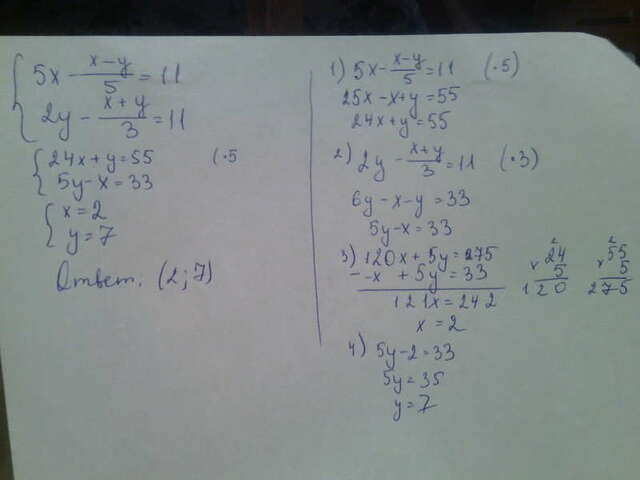 5x - (x-y)/5 = 11
2y - (x+y)/3 = 11
24x+y=55 (·5
5y-x=33
x=2
y=7
Ответ: (2;7)
1) 5x - (x-y)/5 = 11 (·5)
25x-x+y=55
24x+y=55
2) 2y - (x+y)/3 = 11 (·3)
6y-x-y=33
5y-x=33
3) 120x+5y=275
- -x+5y=33
121x=242
x=2
2
24
× 5
120
2
55
× 5
275
4) 5y-2=33
5y=35
y=7